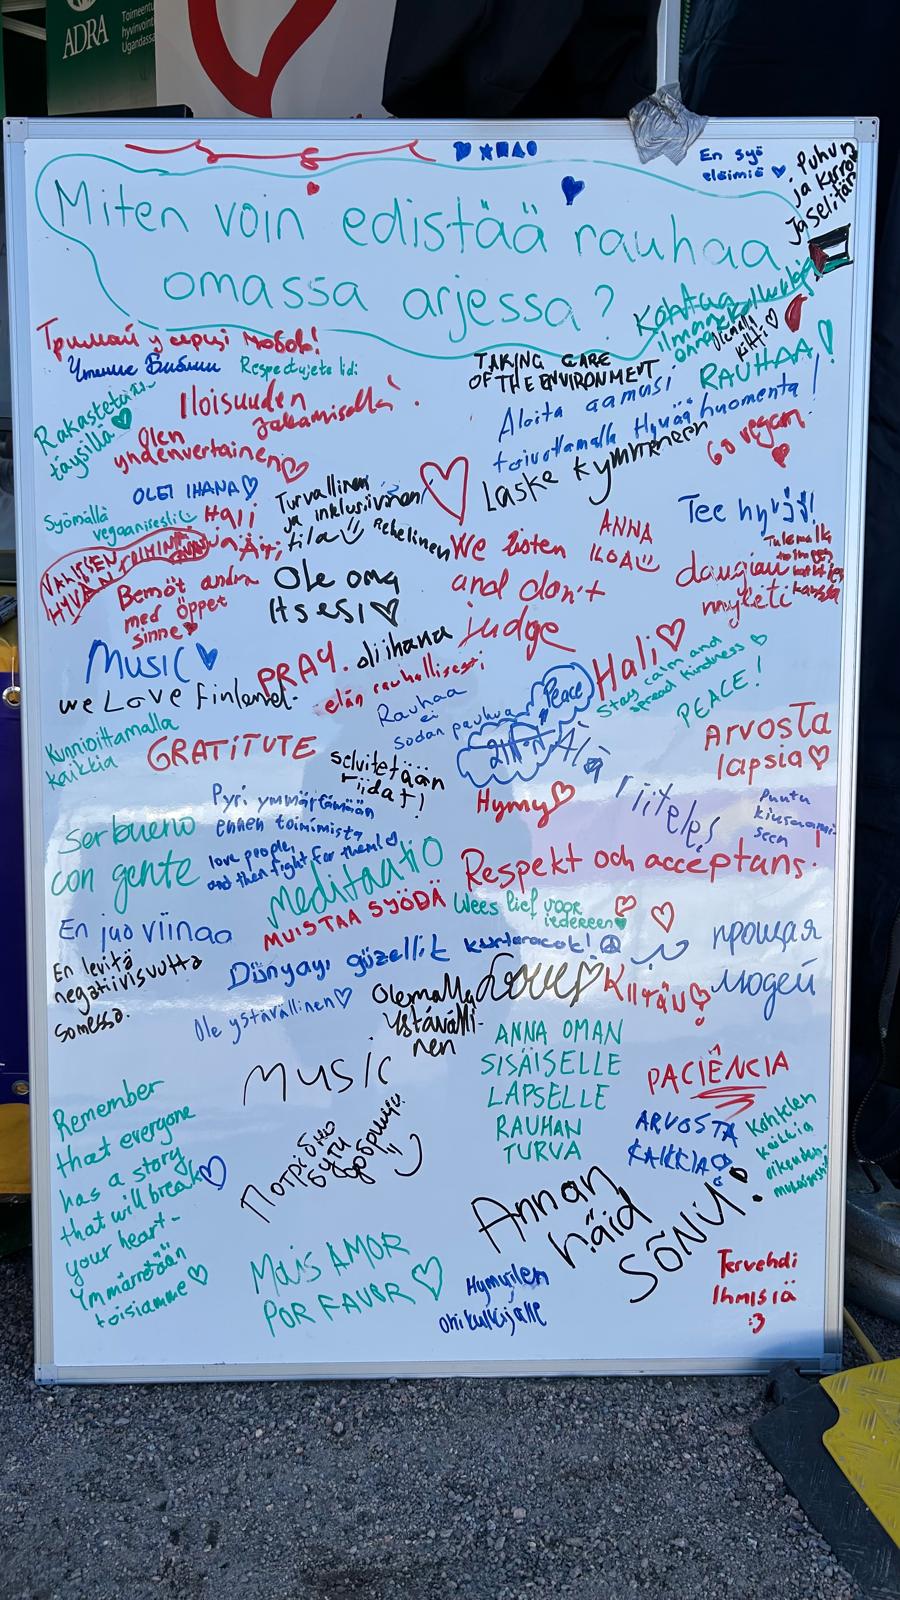 ADRA
Toimeentu
hyvinvoint
Ugandassa
En syö
eläimiä
Puhun
ja kerron
ja selitän
Miten voin edistää rauhaa
omassa arjessa?
Тримай у серці любов!
Чтение Библии
Respectujete lidi
TAKING CARE
OF THE ENVIRONMENT
Olemalla
kiltti
RAUHAA!
Rakastetaan
täysillä
Iloisuuden
jakamisella!
Aloita aamusi
toivottamalla Hyvää huomenta!
Olen
yhdenvertainen
Go vegan
Laske kymmeneen
OLET IHANA
Turvallinen
ja inklusiivinen
tila
Rehellinen
Syömällä
vegaanisesti
Hali
ja Äiti
Tee hyvää!
ANNA
ILOA
VAHVISEN
HYVÄN
We listen
and don't
judge
Tulemalla
toimeen
kaikkien
kanssa
Bemöt andra
med öppet
sinne
Ole oma
itsesi
daugiau
myleti
Music
PRAY.
oli ihana
Hali
Stay calm and
spread kindness
we Love Finland.
elän rauhallisesti
Rauhaa
ei
sodan pauhua
Peace
PEACE!
Kunnioittamalla
kaikkia
GRATITUTE
selvitetään
riidat!
Älä
riitele
Arvosta
lapsia
Hymy
Puutu
kiusaami-
seen
Pyri ymmärtämään
ennen toimimista
Ser bueno
con gente
love people,
and then fight for them!
Meditaatio
Respekt och acceptans.
MUISTAA SYÖDÄ
Wees lief voor
iedereen
En juo viinaa
Dünyayı güzellik kurtaracak!
прощая
людей
En levitä
negatiivisuutta
somessa.
Love
Kiitän
Ole ystävällinen
Olemalla
ystävälli-
nen
ANNA OMAN
SISÄISELLE
LAPSELLE
RAUHAN
TURVA
Music
PACIÊNCIA
Remember
that everyone
has a story
that will break
your heart-
Ymmärretään
toisiamme
Потрібно
бути
добрішим
ARVOSTA
KAIKKIA
Kohtelen
kaikkia
oikeuden-
mukaisesti
Annan
häid
SÕNU!
Mais AMOR
POR FAVOR
Hymyilen
ohikulkijalle
Tervehdi
Ihmisiä
:3